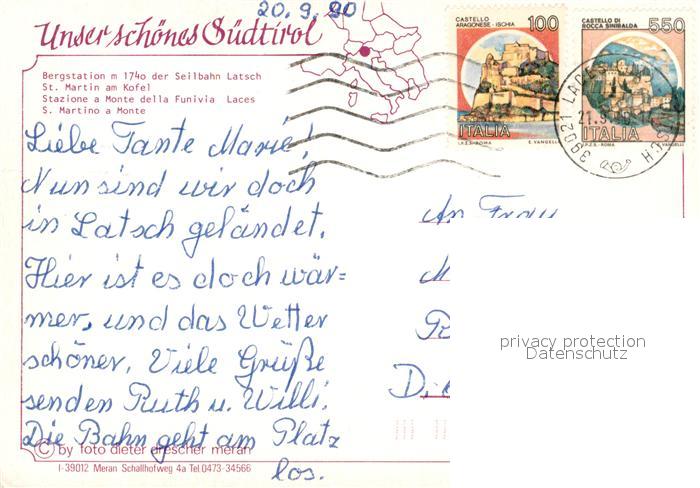 20.9.90
Unser schönes Südtirol
Bergstation m 1740 der Seilbahn Latsch
St. Martin am Kofel
Stazione a Monte della Funivia Laces
S. Martino a Monte
CASTELLO
ARAGONESE - ISCHIA 100
ITALIA
I.P.Z.S.-ROMA E. VANGELLI
CASTELLO DI
ROCCA SINIBALDA 550
ITALIA
I.P.Z.S.-ROMA E. VANGELLI
39021
Liebe Tante Marie!
Nun sind wir doch
in Latsch geländet.
Hier ist es doch wär=
mer, und das Wetter
schöner. Viele Grüße
senden Ruth u. Willi.
Die Bahn geht am Platz
los.
An Frau
M
R
D.
privacy protection
Datenschutz
© by foto dieter drescher meran
I-39012 Meran Schallhofweg 4a Tel 0473-34566